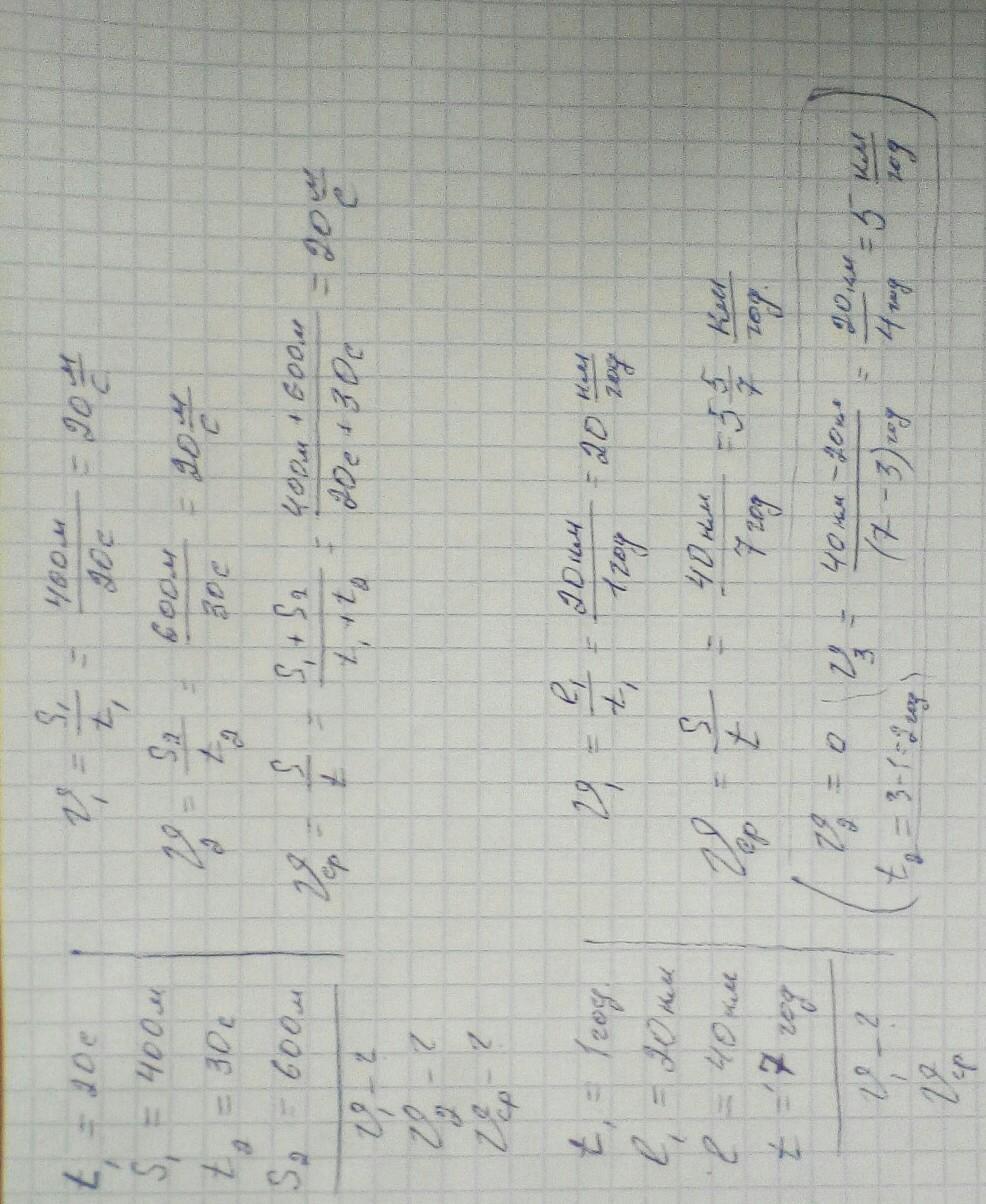 t₁ = 20с
S₁ = 400м
t₂ = 30с
S₂ = 600м
𝒱₁ - ?
𝒱₂ - ?
𝒱ср - ?
𝒱₁ = S₁/t₁ = 400м/20с = 20 м/с
𝒱₂ = S₂/t₂ = 600м/30с = 20 м/с
𝒱ср = S/t = (S₁ + S₂)/(t₁ + t₂) = (400м + 600м)/(20с + 30с) = 20 м/с
t₁ = 1 год.
l₁ = 20 км
l = 40 км
t = 7 год
𝒱₁ - ?
𝒱ср
𝒱₁ = l₁/t₁ = 20км/1год = 20 км/год
𝒱ср = S/t = 40км/7год = 5 5/7 км/год.
(𝒱₂ = 0 𝒱₃ = (40км - 20км)/(7 - 3)год = 20км/4год = 5 км/год)
t₂ = 3 - 1 = 2 год)